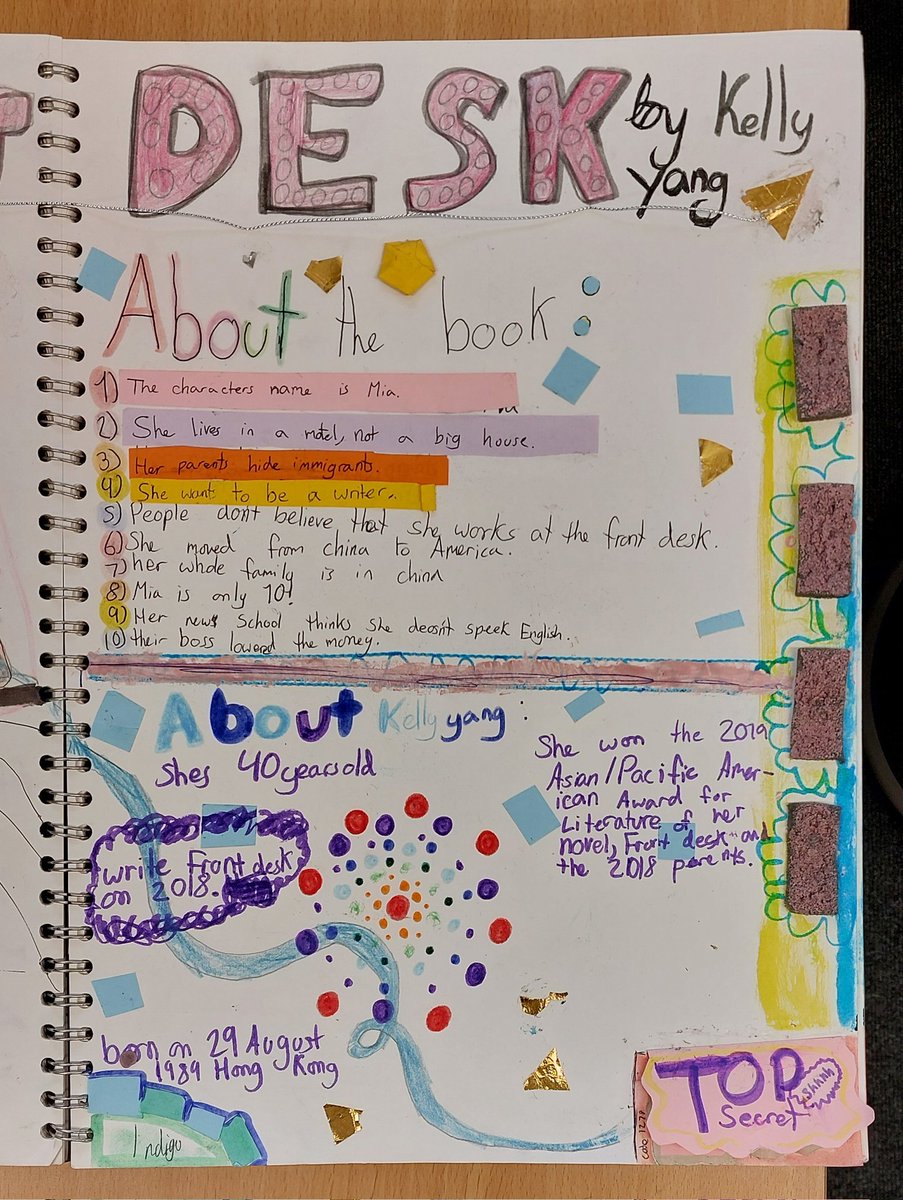 DESK
by Kelly
Yang
About the book:
1) The characters name is Mia.
2) She lives in a motel, not a big house.
3) Her parents hide immigrants.
4) She want to be a writer..
5) People don't believe that she works at the front desk.
6) She moved from china to America.
7) her whole family is in china
8) Mia is only 10!
9) Her new school thinks she doesn't speek English.
10) their boss lowered the money.
About Kelly yang:
Shes 40 years old
She won the 2019
Asian/Pacific Amer-
ican Award for
Literature of her
novel, Front desk and
the 2018 parents.
write Front desk
on 2018.
born on 29 August
1989 Hong Kong
Indigo
TOP
Secret